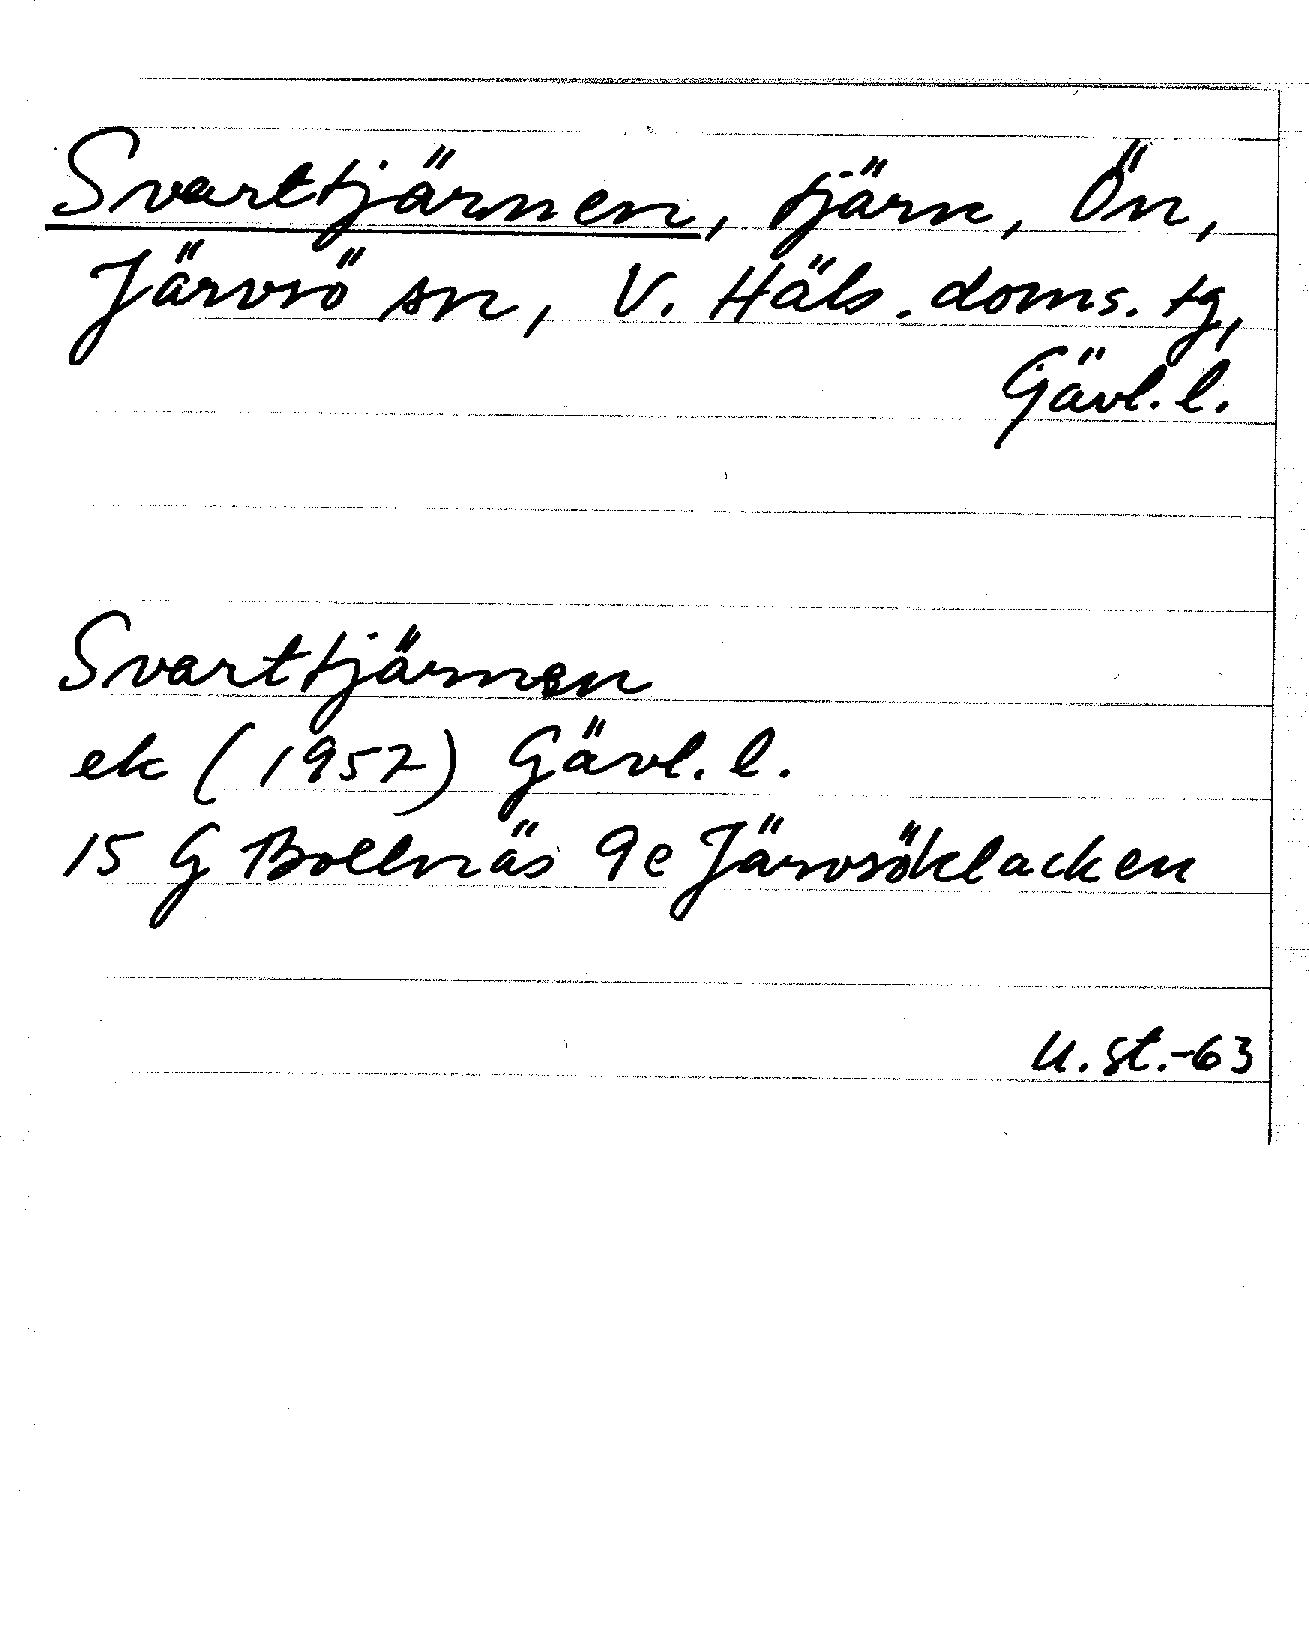 Svarttjärnen, tjärn, Ön,
Järvsö sn, V. Häls. doms. tg,
Gävl. l.
Svarttjärnen
ek (1957) Gävl. l.
15 G Bollnäs 9e Järvsöklacken
U. st.-63